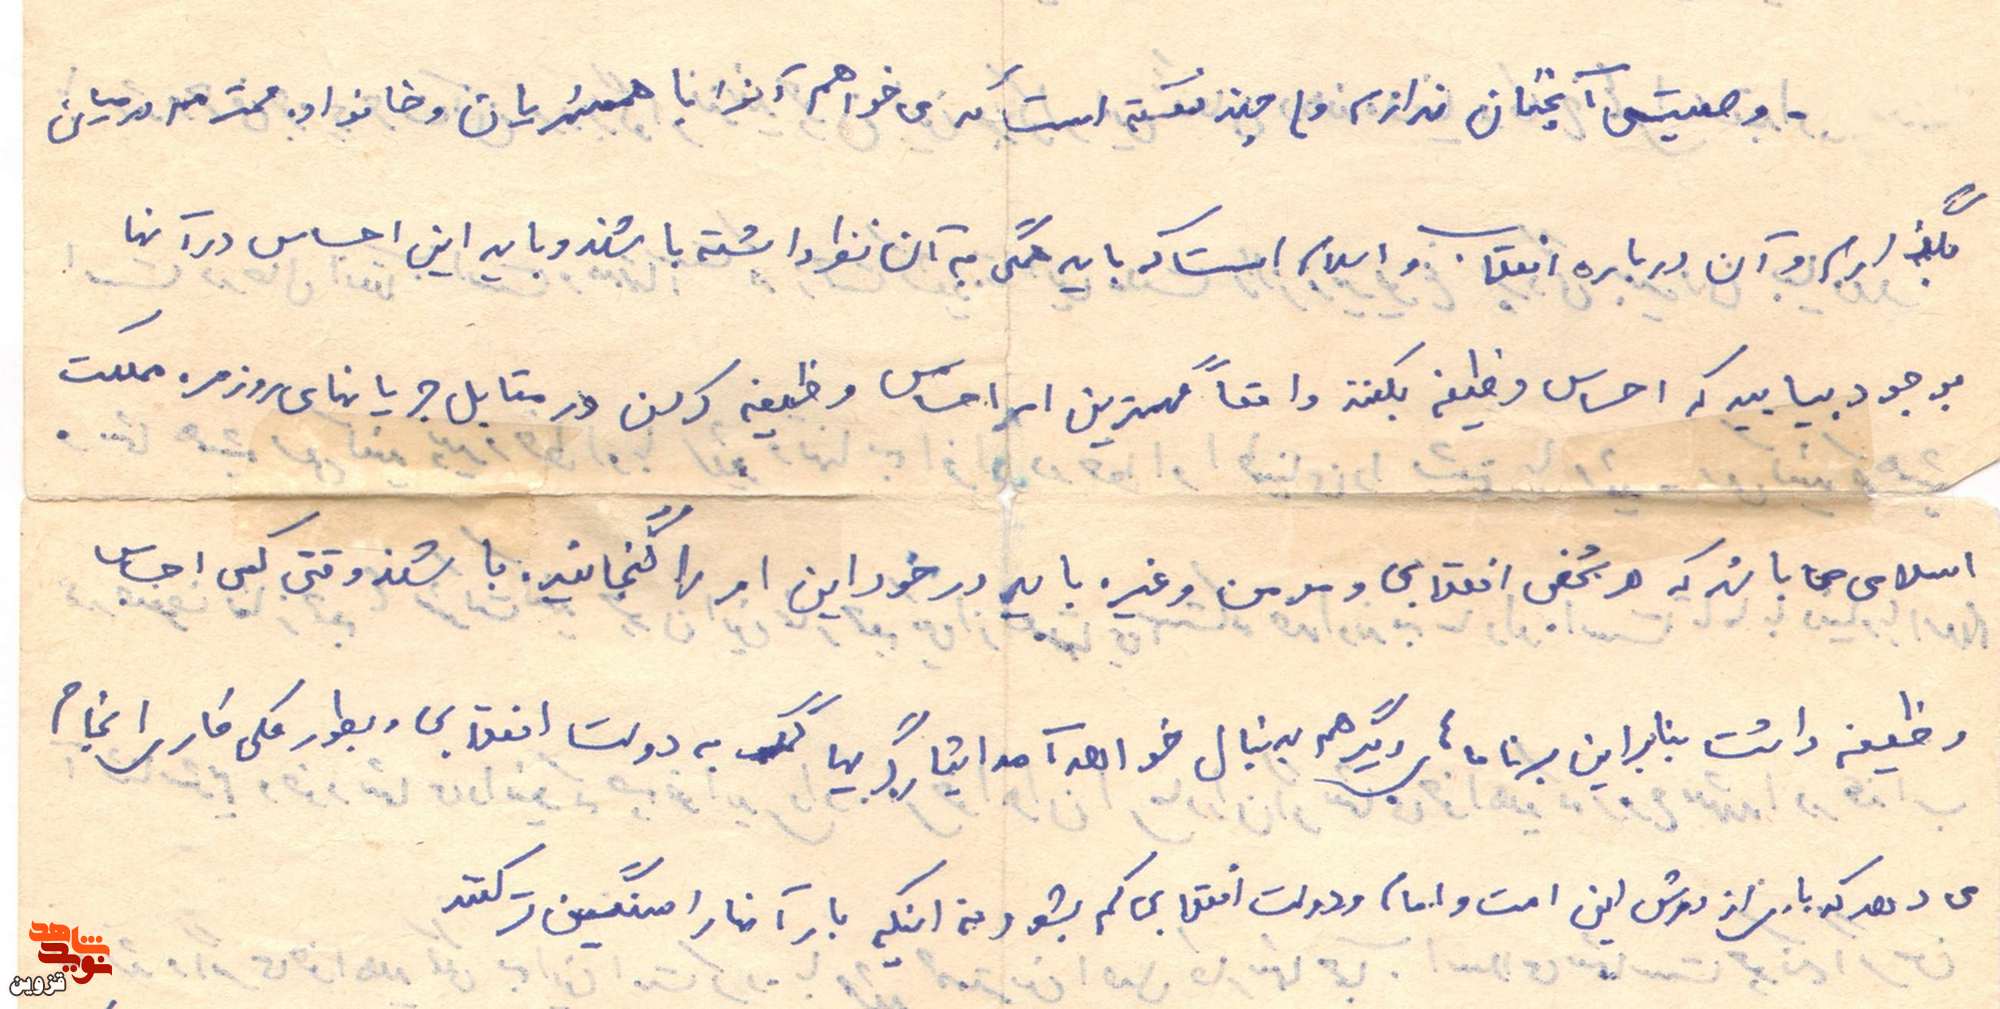 - وصیتی آنچنان ندارم ولی چند نکته است که می خواهم آنرا با همشهریان و خانواده محترمم در میان
بگذارم و آن درباره انقلاب و اسلام است که باید همگی به آن نظر داشته باشند و باید این احساس در آنها
بوجود بیاید که احساس وظیفه بکنند واقعاً مهمترین امر احساس وظیفه کردن در مقابل جریانهای روزمره مملکت
اسلامی می باشد که هر شخص انقلابی و مومن و غیره باید در خود این امر را گنجانیده باشند وقتی کسی احساس
وظیفه داشت بنابراین برنامه های دیگر هم بدنبال خواهد آمد ایثارگریها کمک به دولت انقلابی و بطور کلی کاری انجام
می دهد که باری از دوش این امت و امام و دولت انقلابی کم بشود نه اینکه بار آنها را سنگین تر کنند
نوید شاهد
قزوین